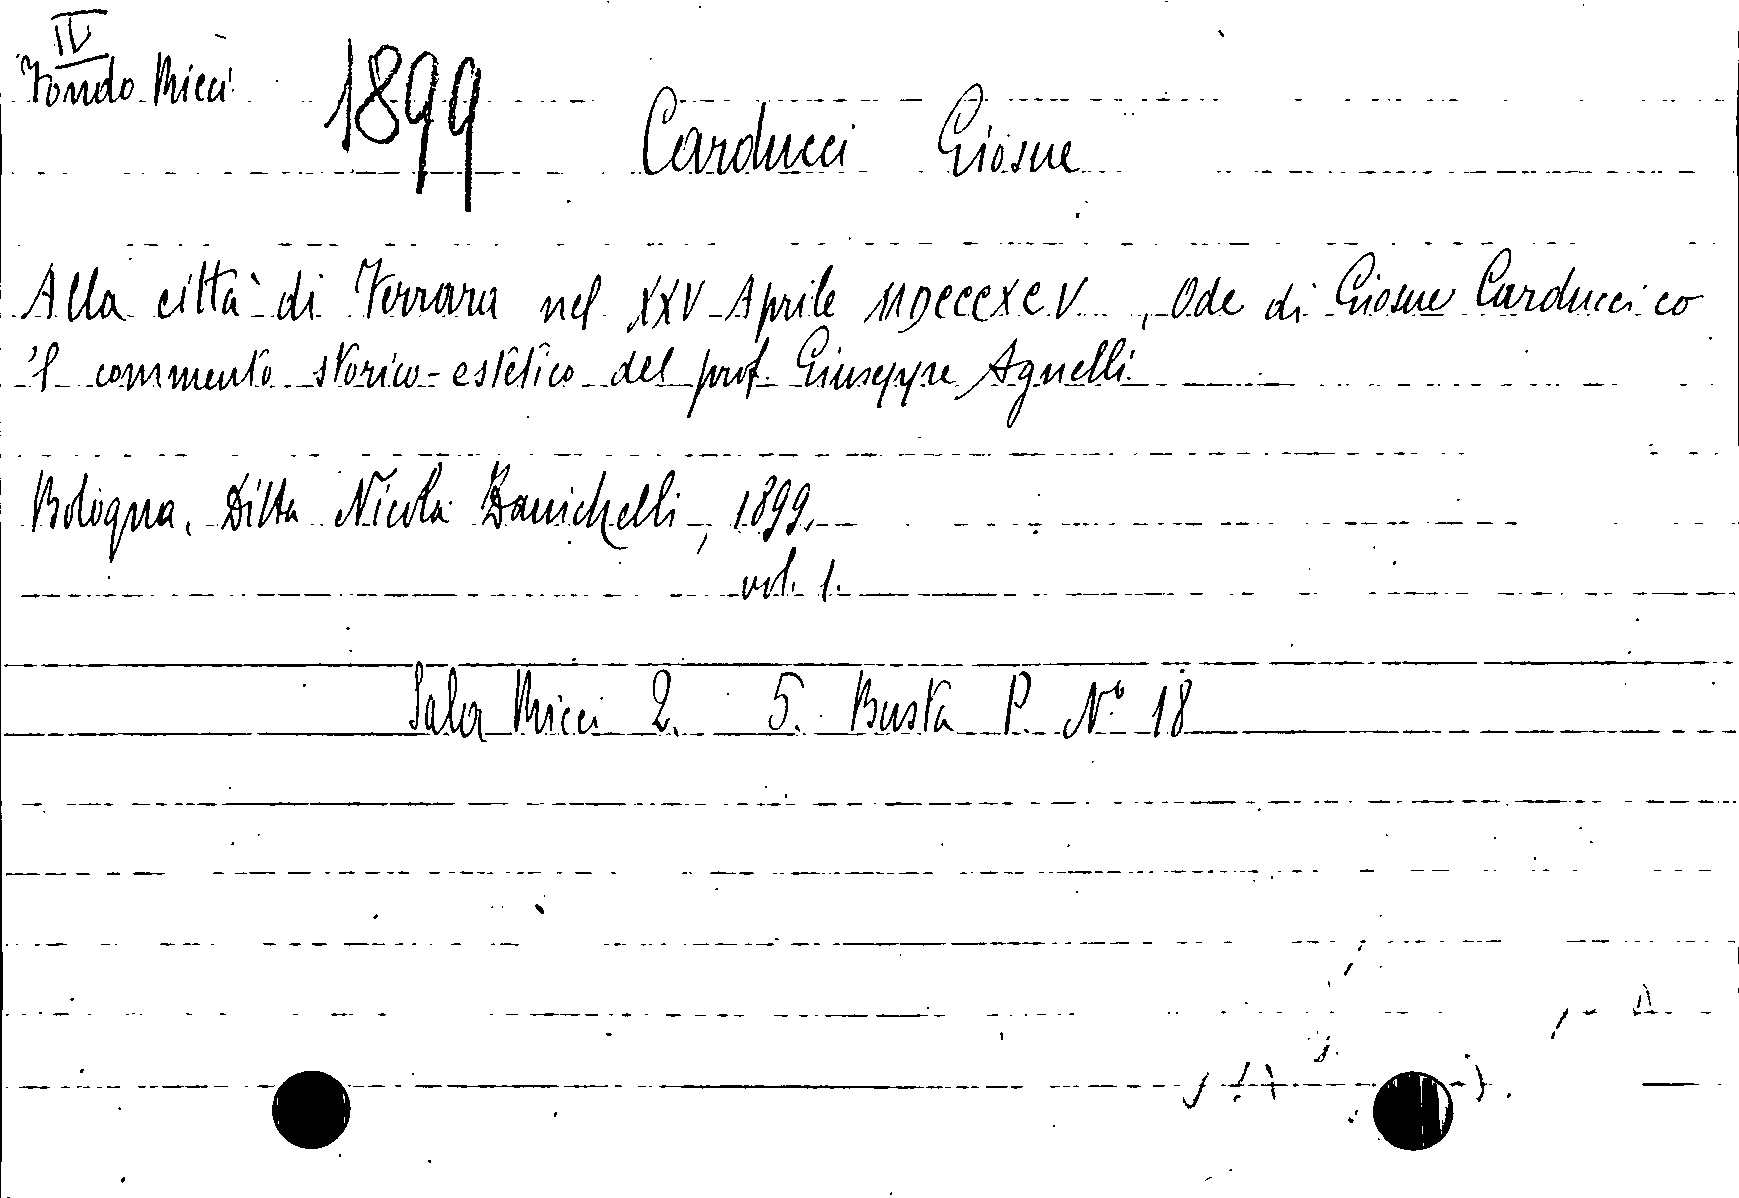 IV
Fondo Ricci
1899
Carducci Giosue
Alla città di Ferrara nel XXV Aprile MDCCCXCV, Ode di Giosue Carducci co
'l commento storico-estetico del prof. Giuseppe Agnelli.
Bologna, Ditta Nicola Zanichelli, 1899.
vol. 1.
Sala Ricci 2. 5. Busta P. N.° 18